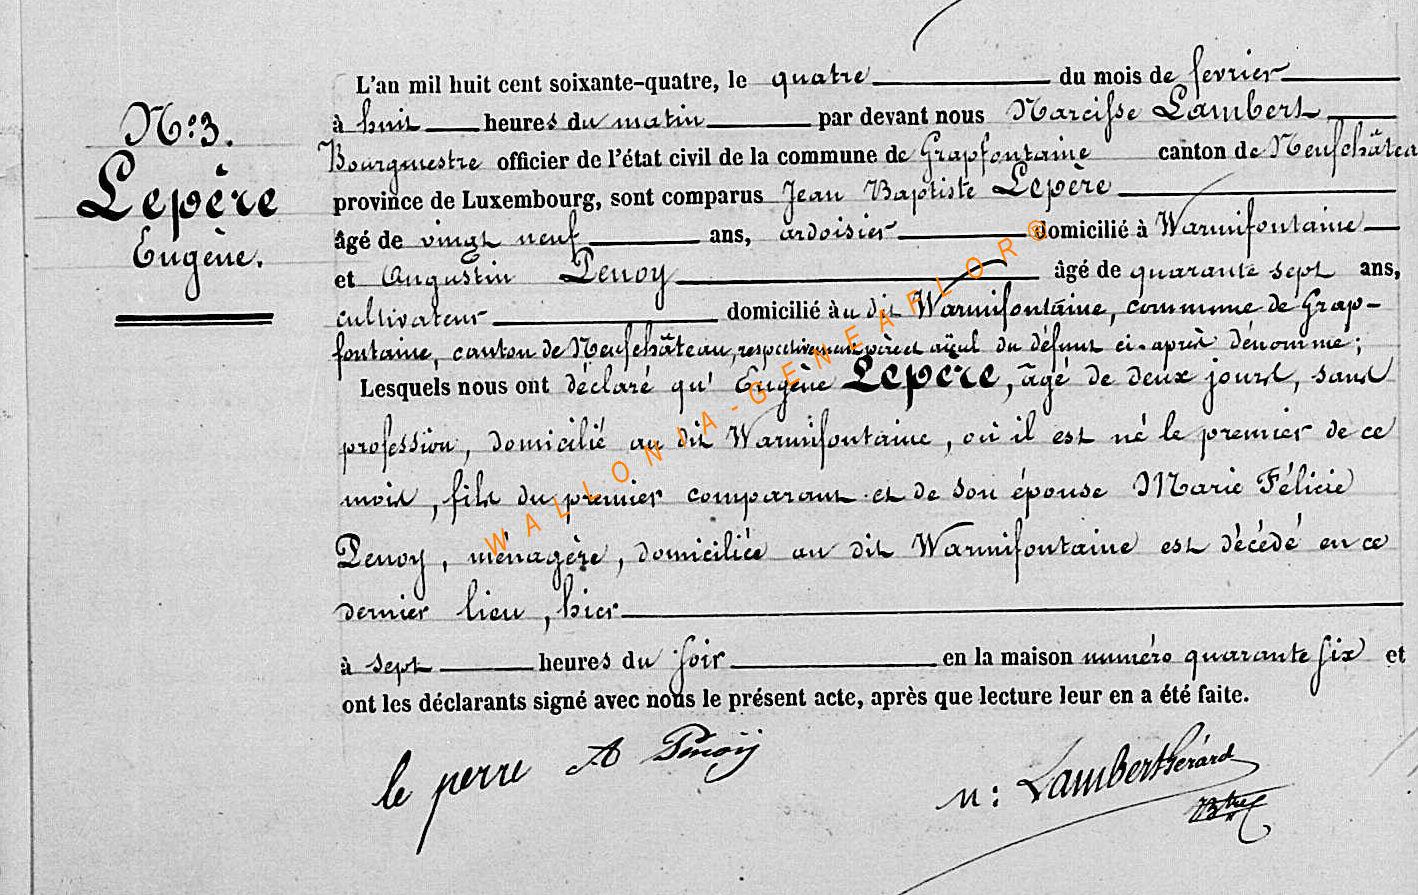 N° 3.
Lepère
Eugène.
L'an mil huit cent soixante-quatre, le quatre du mois de fevrier
à huit heures du matin par devant nous Narcisse Lambert
Bourgmestre officier de l'état civil de la commune de Grapfontaine canton de Neufchâteau
province de Luxembourg, sont comparus Jean Baptiste Lepère
âgé de vingt neuf ans, ardoisier domicilié à Warmifontaine
et Augustin Penoy âgé de quarante sept ans,
cultivateur domicilié au dit Warmifontaine, commune de Grap-
fontaine, canton de Neufchâteau, respectivement père et aïeul du défunt ci-après dénommé;
Lesquels nous ont déclaré qu' Eugène Lepère, âgé de deux jours, sans
profession, domicilié au dit Warmifontaine, où il est né le premier de ce
mois, fils du premier comparant et de son épouse Marie Félicie
Penoy, ménagère, domiciliée au dit Warmifontaine est décédé en ce
dernier lieu, hier
à sept heures du soir en la maison numéro quarante six et
ont les déclarants signé avec nous le présent acte, après que lecture leur en a été faite.
le perre A Penoÿ
N: Lambert Gérard
Btre
WALLONIA-GENEARLOR®